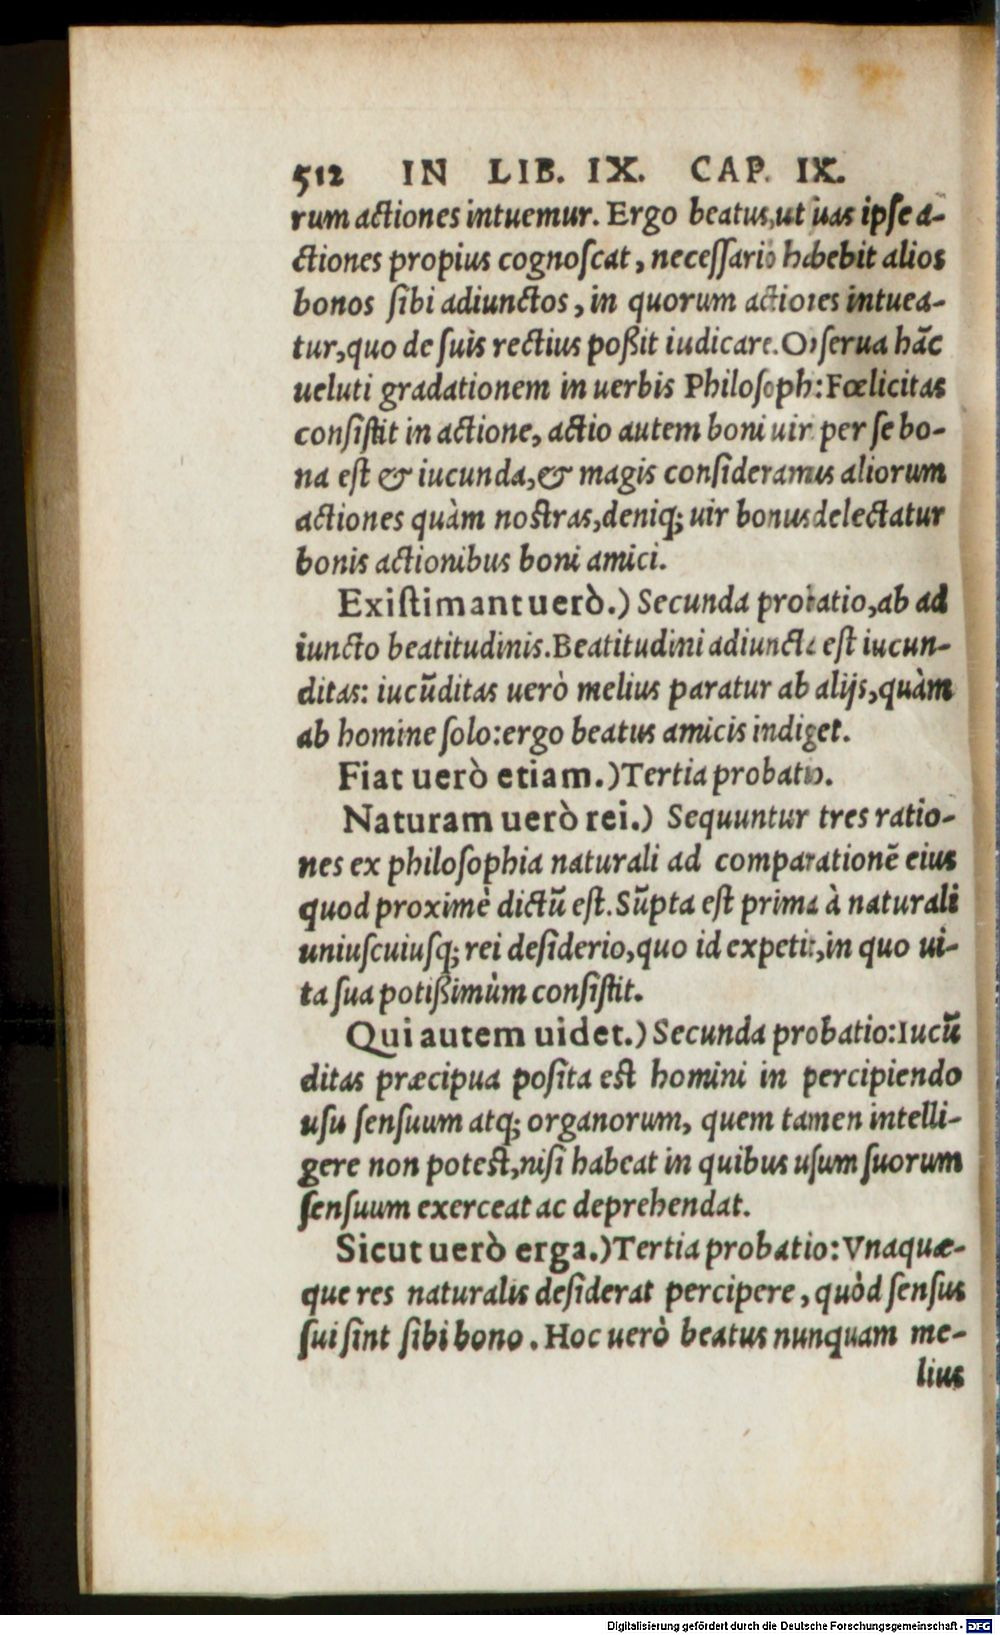 512 IN LIB. IX. CAP. IX.
rum actiones intuemur. Ergo beatus, ut suas ipse a-
ctiones propius cognoscat, necessariò habebit alios
bonos sibi adiunctos, in quorum actiones intuea-
tur, quo de suis rectius poßit iudicare. Obserua hãc
ueluti gradationem in uerbis Philosoph: Fœlicitas
consistit in actione, actio autem boni uiri per se bo-
na est & iucunda, & magis consideramus aliorum
actiones quàm nostras, deniq; uir bonus delectatur
bonis actionibus boni amici.
Existimant uerò.) Secunda probatio, ab ad
iuncto beatitudinis. Beatitudini adiuncta est iucun-
ditas: iucũditas uerò melius paratur ab alijs, quàm
ab homine solo: ergo beatus amicis indiget.
Fiat uerò etiam.) Tertia probatio.
Naturam uerò rei.) Sequuntur tres ratio-
nes ex philosophia naturali ad comparationẽ eius
quod proximè dictũ est. Sũpta est prima à naturali
uniuscuiusq; rei desiderio, quo id expetit, in quo ui-
ta sua potißimùm consistit.
Qui autem uidet.) Secunda probatio: Iucũ
ditas præcipua posita est homini in percipiendo
usu sensuum atq; organorum, quem tamen intelli-
gere non potest, nisi habeat in quibus usum suorum
sensuum exerceat ac deprehendat.
Sicut uerò erga.) Tertia probatio: Vnaquæ-
que res naturalis desiderat percipere, quòd sensus
sui sint sibi bono. Hoc uerò beatus nunquam me-
lius
Digitalisierung gefördert durch die Deutsche Forschungsgemeinschaft - DFG